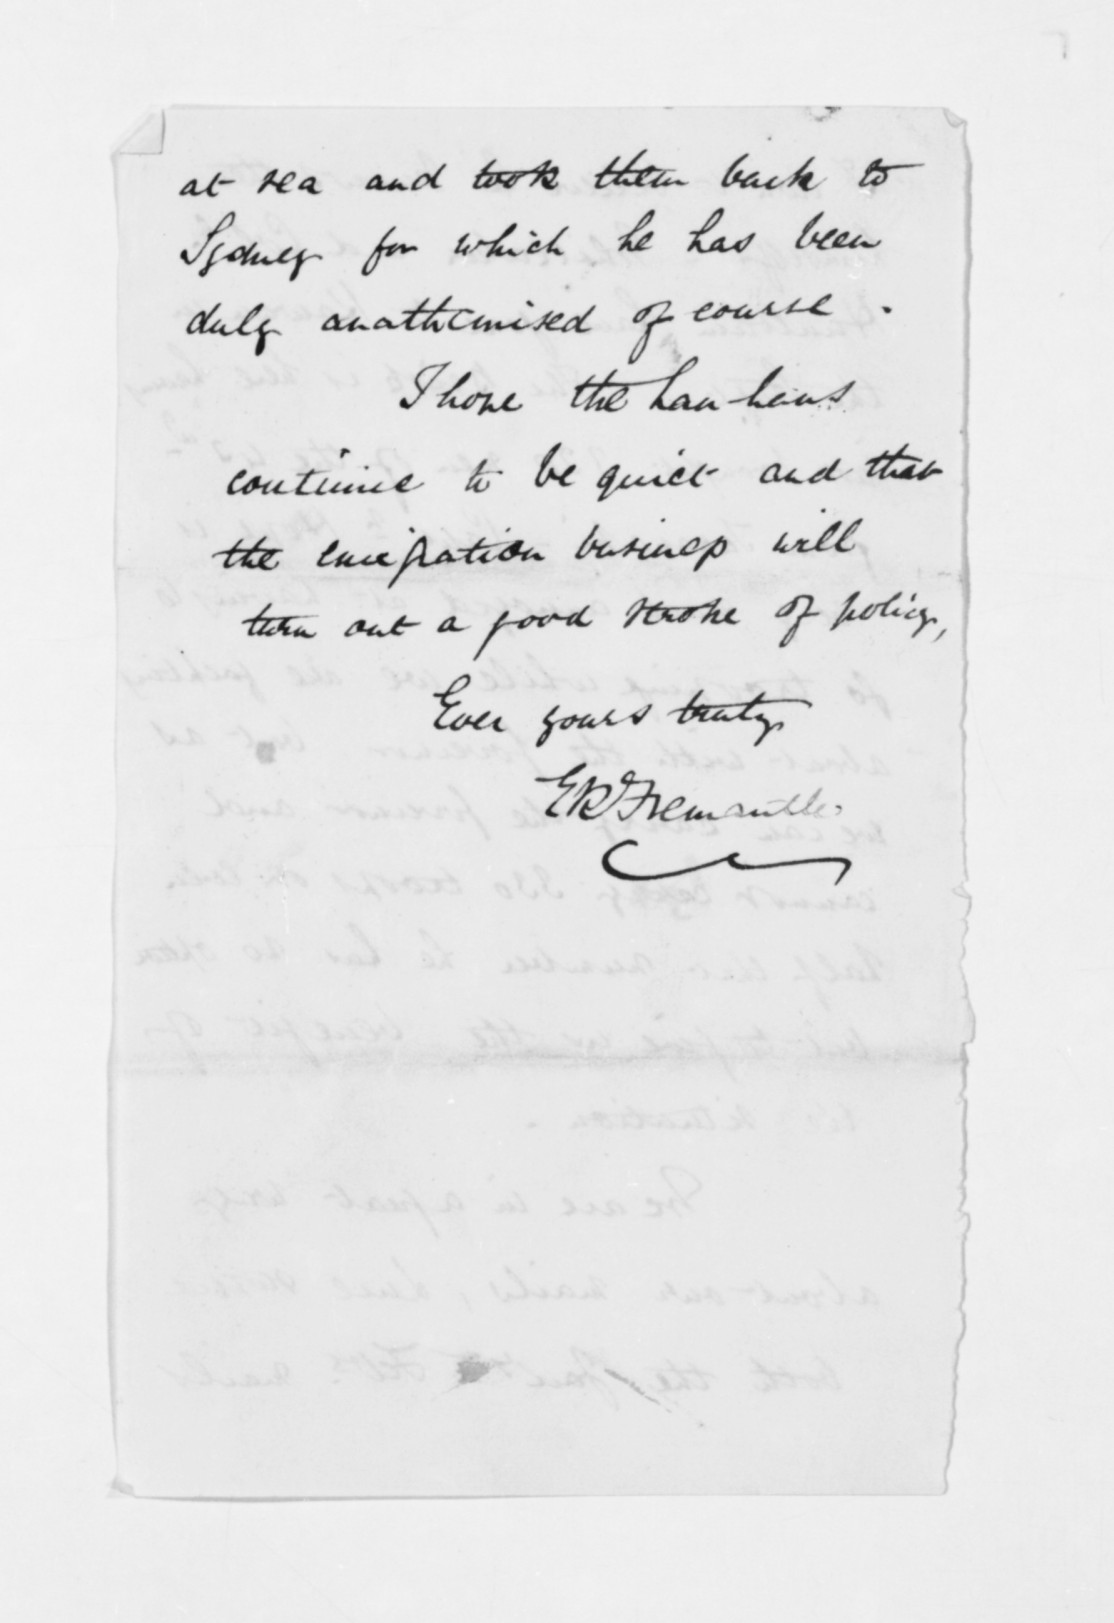 at sea and took them back to
Sydney for which he has been
duly anathemised of course.
I hope the Hau-haus
continue to be quiet and that
the emigration business will
turn out a good stroke of policy,
Ever yours truly
E R Fremantle.